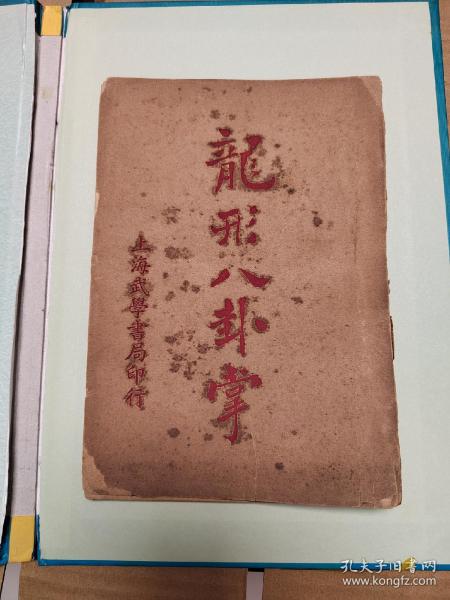 龍形八卦掌
上海武學書局印行
孔夫子旧书网
www.kongfz.com